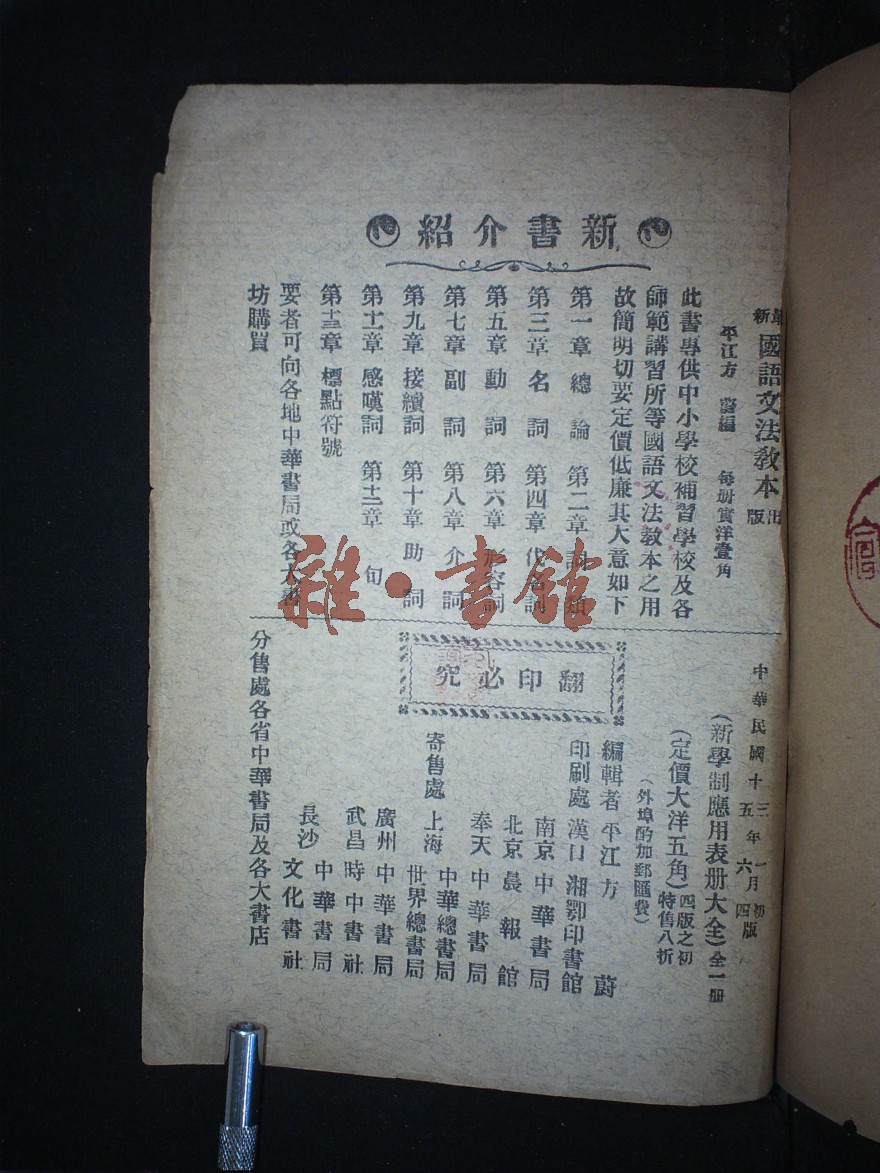 新書介紹
最新國語文法教本出版
平江方蔚編 每册實洋壹角
此書專供中小學校補習學校及各
師範講習所等國語文法教本之用
故簡明切要定價低廉其大意如下
第一章 總論 第二章 詞類
第三章 名詞 第四章 代名詞
第五章 動詞 第六章 形容詞
第七章 副詞 第八章 介詞
第九章 接續詞 第十章 助詞
第十一章 感嘆詞 第十二章 句
第十三章 標點符號
要者可向各地中華書局或各大書
坊購買
中華民國十三年一月初版
十五年六月四版
(新學制應用表册大全)全一册
(定價大洋五角)四版之初特售八折
(外埠酌加郵匯費)
翻印必究
編輯者 平江方蔚
印刷處 漢口湘鄂印書館
南京中華書局
北京晨報館
奉天中華書局
寄售處 上海 中華總書局
世界總書局
廣州中華書局
武昌時中書社
長沙 中華書局
文化書社
分售處各省中華書局及各大書店
雜·書館